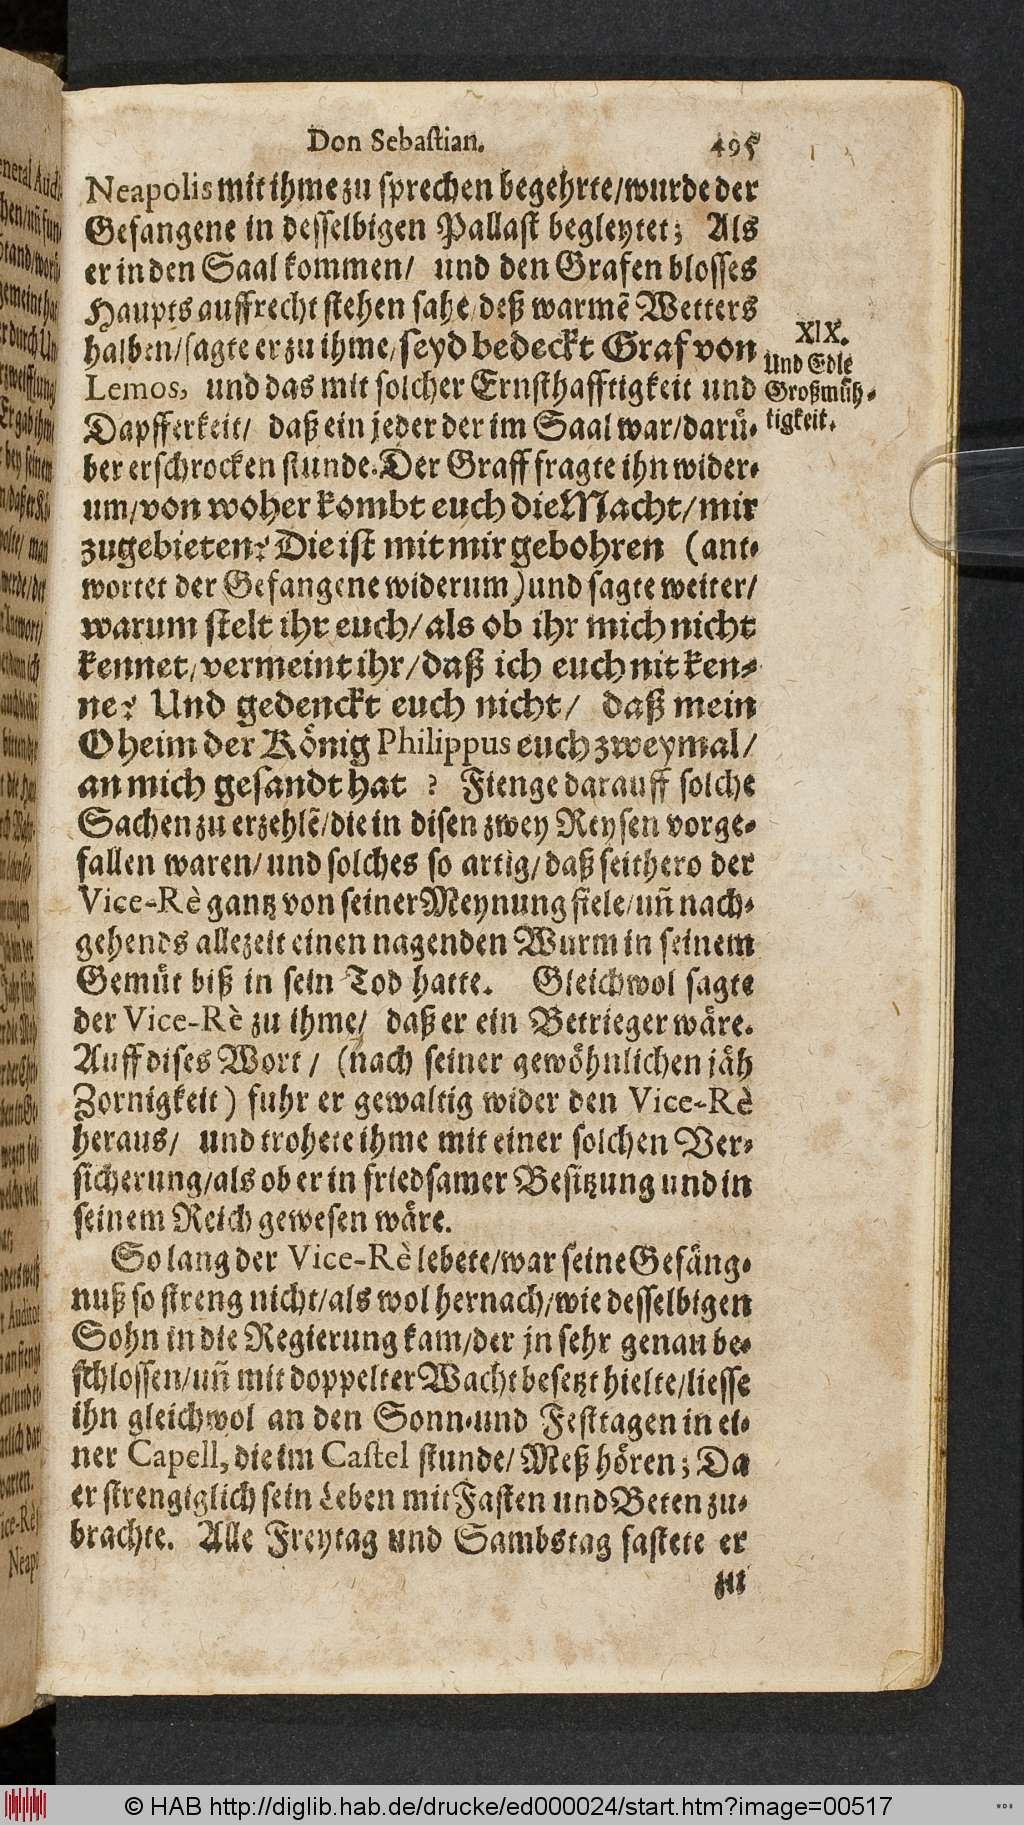 Don Sebastian. 495
Neapolis mit ihme zu sprechen begehrte/wurde der
Gefangene in desselbigen Pallast begleytet; Als
er in den Saal kommen/ und den Grafen blosses
Haupts auffrecht stehen sahe/deß warmẽ Wetters
halben/sagte er zu ihme/seyd bedeckt Graf von
Lemos, und das mit solcher Ernsthafftigkeit und
Dapfferkeit/ daß ein jeder der im Saal war/darü-
ber erschrocken stunde. Der Graff fragte ihn wider-
um/von woher kombt euch die Macht/mir
zugebieten? Die ist mit mir gebohren (ant-
wortet der Gefangene widerum) und sagte weiter/
warum stelt ihr euch/als ob ihr mich nicht
kennet/vermeint ihr/daß ich euch nit ken-
ne? Und gedenckt euch nicht/ daß mein
Oheim der König Philippus euch zweymal/
an mich gesandt hat ? Fienge darauff solche
Sachen zu erzehlẽ/die in disen zwey Reysen vorge-
fallen waren/und solches so artig/daß seithero der
Vice-Rè gantz von seiner Meynung fiele/uñ nach-
gehends allezeit einen nagenden Wurm in seinem
Gemüt biß in sein Tod hatte. Gleichwol sagte
der Vice-Rè zu ihme/ daß er ein Betrieger wäre.
Auff dises Wort/ (nach seiner gewöhnlichen jäh
Zornigkeit) fuhr er gewaltig wider den Vice-Rè
heraus/ und trohete ihme mit einer solchen Ver-
sicherung/als ob er in friedsamer Besitzung und in
seinem Reich gewesen wäre.
So lang der Vice-Rè lebete/war seine Gefäng-
nuß so streng nicht/als wol hernach/wie desselbigen
Sohn in die Regierung kam/der jn sehr genau be-
schlossen/uñ mit doppelter Wacht besetzt hielte/liesse
ihn gleichwol an den Sonn-und Festtagen in ei-
ner Capell, die im Castel stunde/Meß hören; Da
er strengiglich sein Leben mit Fasten und Beten zu-
brachte. Alle Freytag und Sambstag fastete er
zu
XIX.
Und Edle
Großmüh-
tigkeit.
© HAB http://diglib.hab.de/drucke/ed000024/start.htm?image=00517